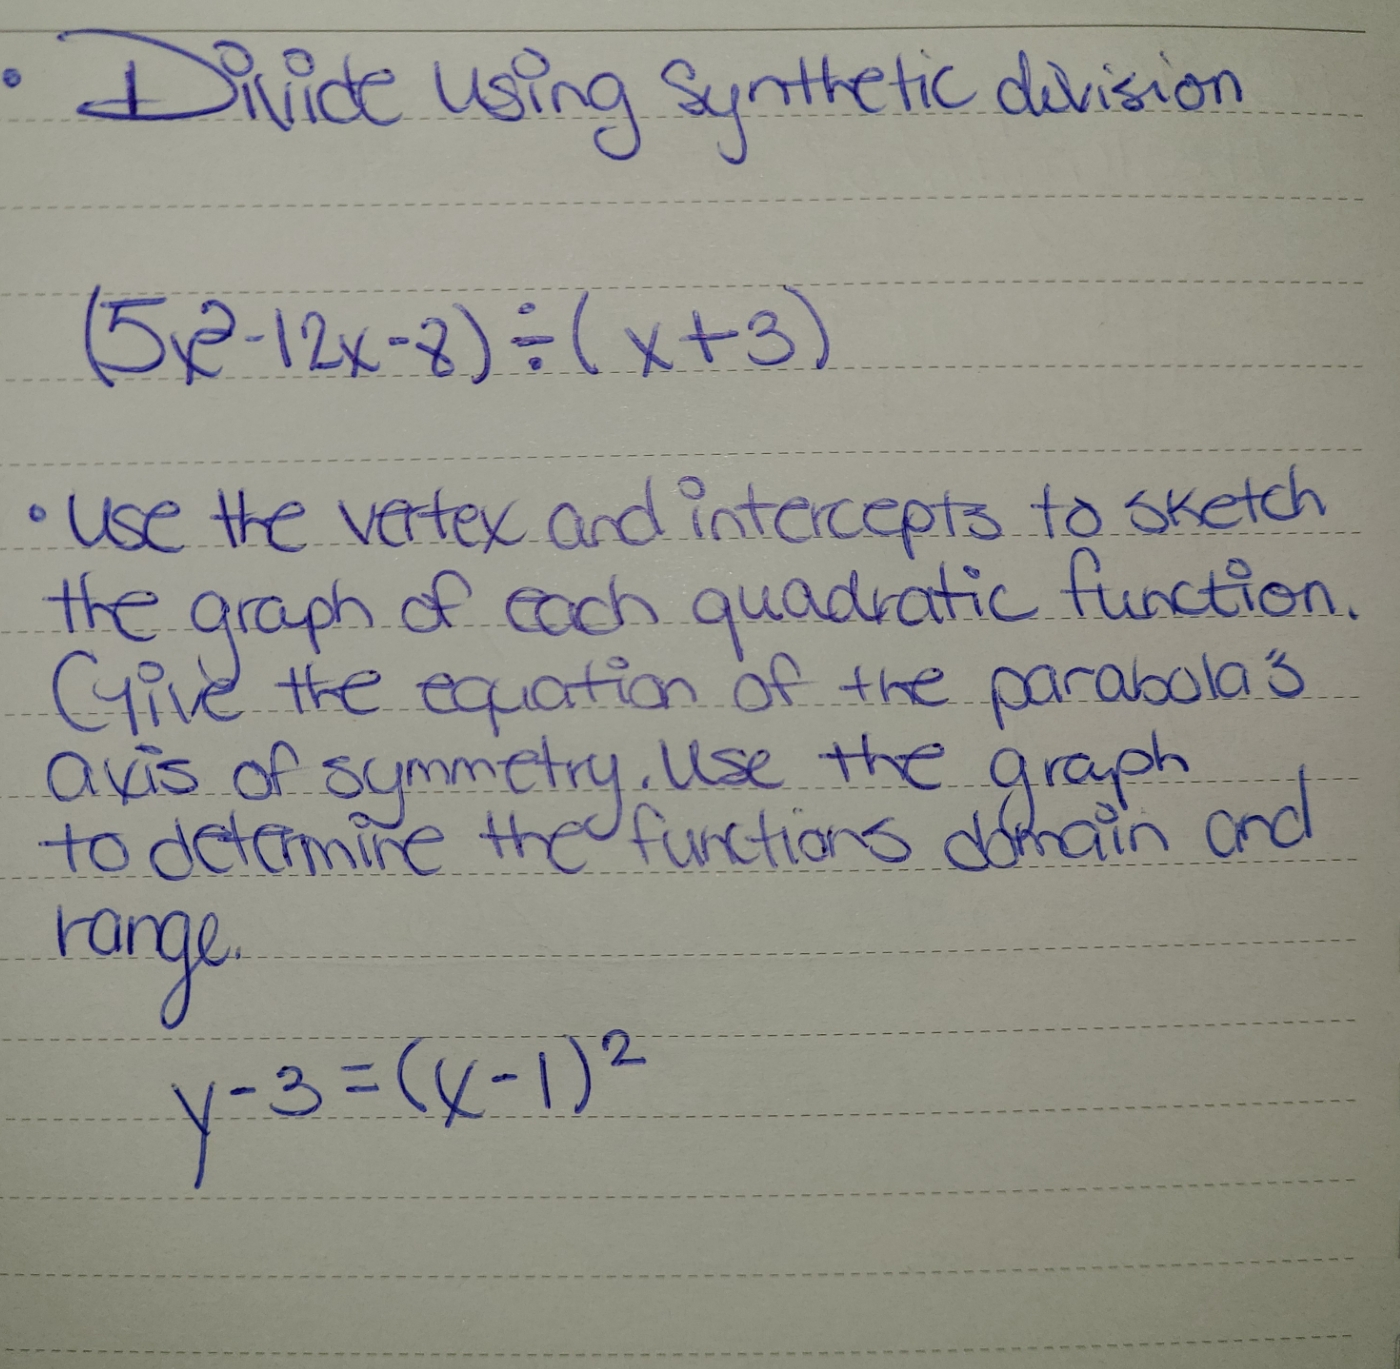 • Divide using synthetic division
(5x²-12x-8)÷(x+3)
• Use the vertex and intercepts to sketch
the graph of each quadratic function.
Give the equation of the parabola's
axis of symmetry. Use the graph
to determine the functions domain and
range.
y-3=(x-1)²